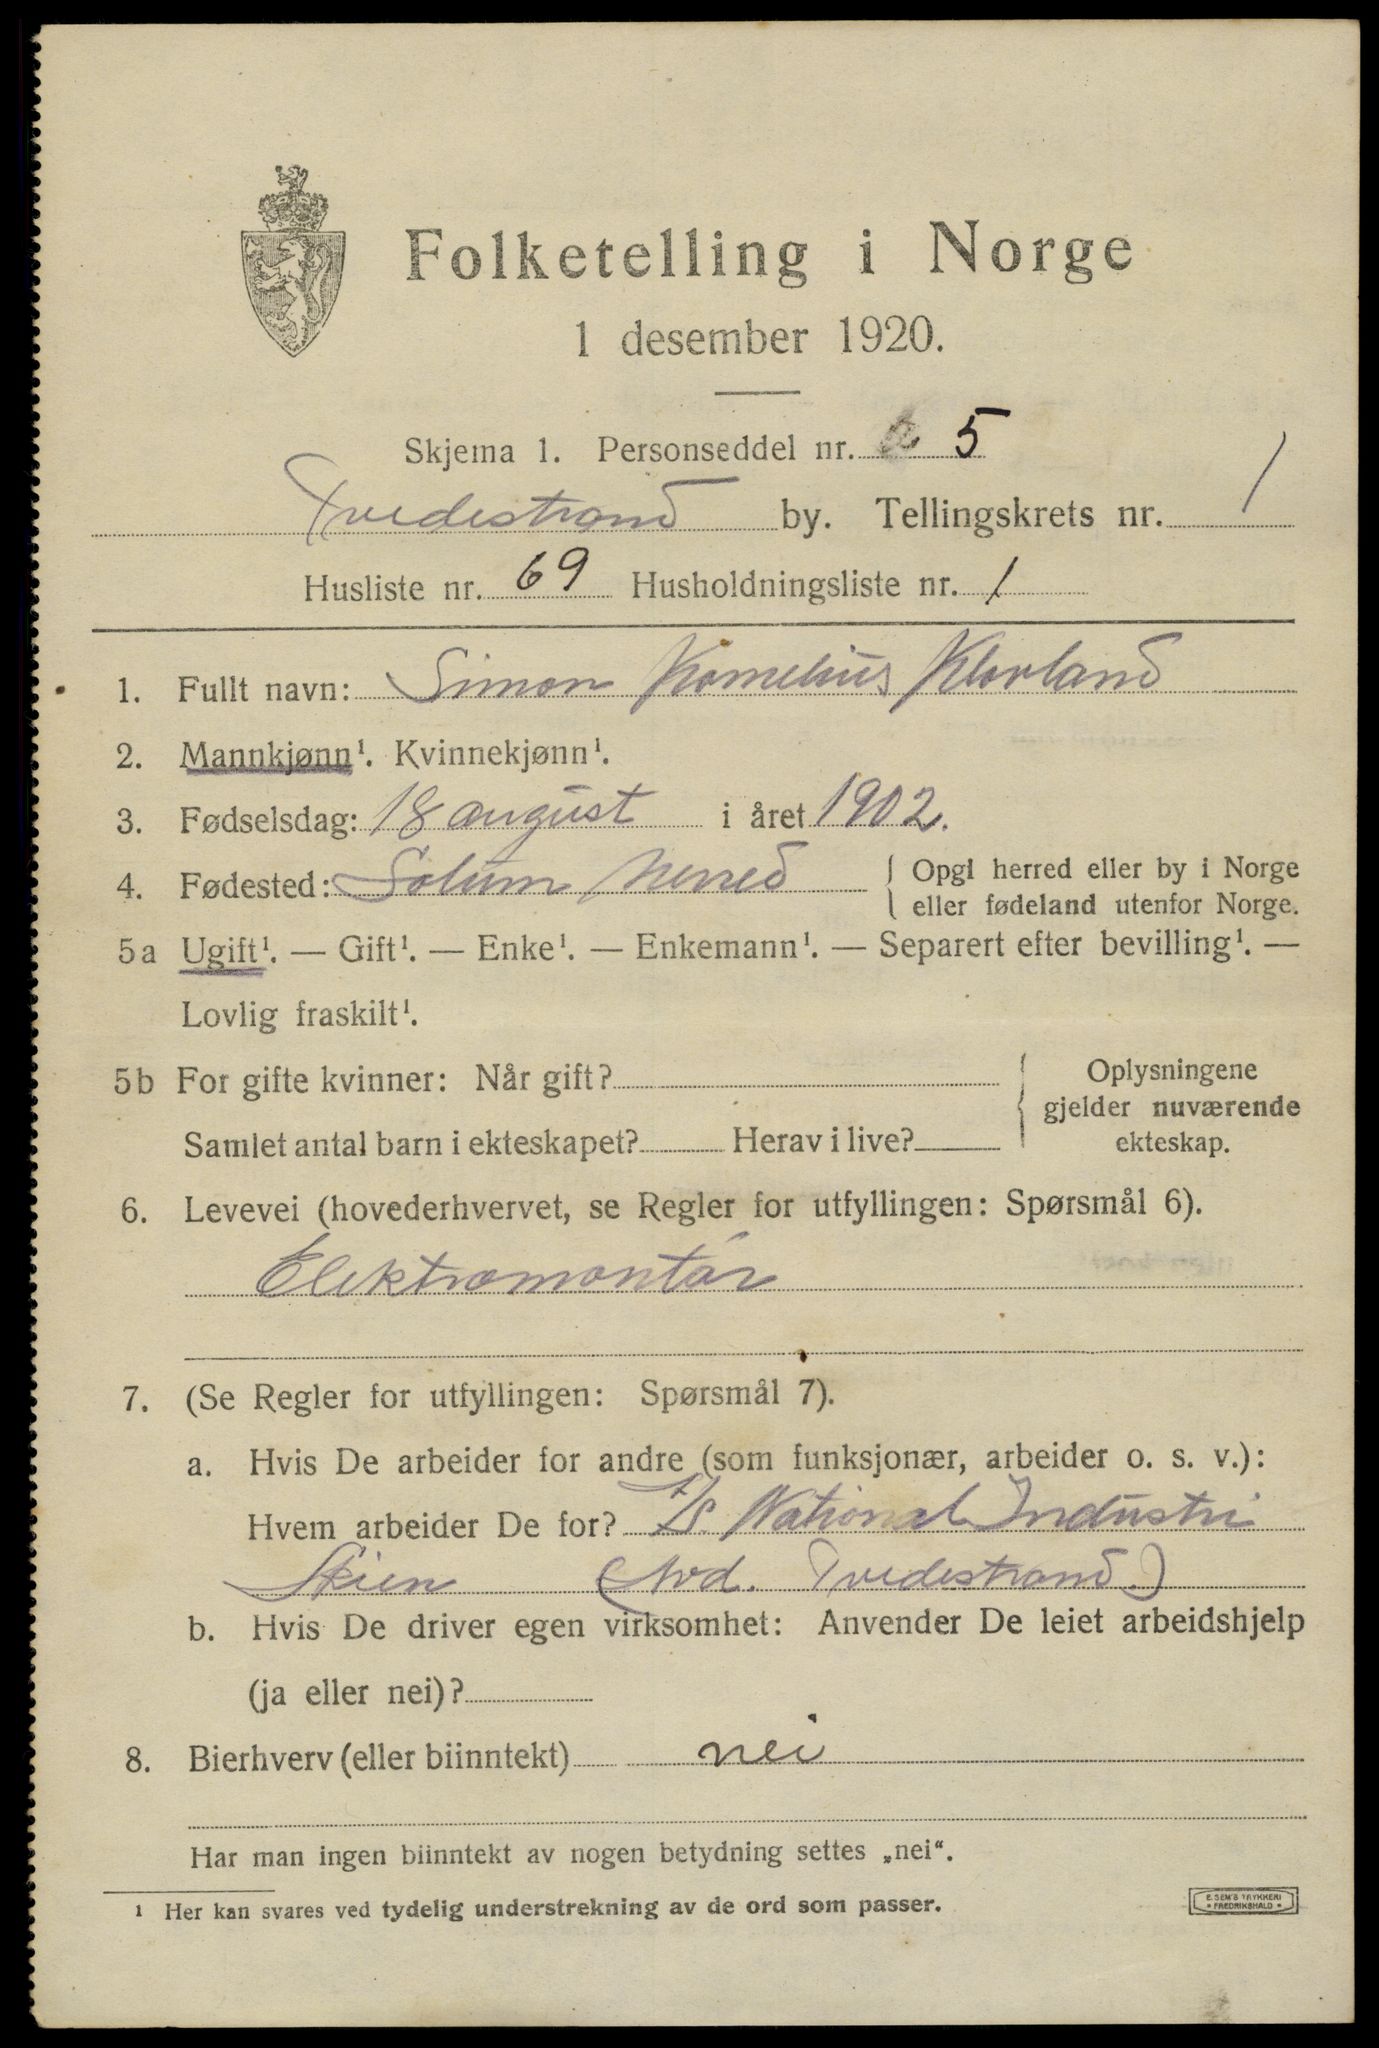 Folketelling i Norge
1 desember 1920.
Skjema 1. Personseddel nr. 5
Tvedestrand by. Tellingskrets nr. 1
Husliste nr. 69 Husholdningsliste nr. 1
1. Fullt navn: Simon Kornelius Klovland
2. Mannkjønn¹. Kvinnekjønn¹.
3. Fødselsdag: 18 august i året 1902.
4. Fødested: Solum herred { Opgi herred eller by i Norge
eller fødeland utenfor Norge.
5a Ugift¹. — Gift¹. — Enke¹. — Enkemann¹. — Separert efter bevilling¹. —
Lovlig fraskilt¹.
5b For gifte kvinner: Når gift?
Samlet antal barn i ekteskapet? Herav i live?
Oplysningene
gjelder nuværende
ekteskap.
6. Levevei (hovederhvervet, se Regler for utfyllingen: Spørsmål 6).
Elektromontør
7. (Se Regler for utfyllingen: Spørsmål 7).
a. Hvis De arbeider for andre (som funksjonær, arbeider o. s. v.):
Hvem arbeider De for? A/S. National Industri
Skien (Avd. Tvedestrand.)
b. Hvis De driver egen virksomhet: Anvender De leiet arbeidshjelp
(ja eller nei)?
8. Bierhverv (eller biinntekt) nei
Har man ingen biinntekt av nogen betydning settes „nei“.
1 Her kan svares ved tydelig understrekning av de ord som passer.
E. SEM'S TRYKKERI
• FREDRIKSHALD •